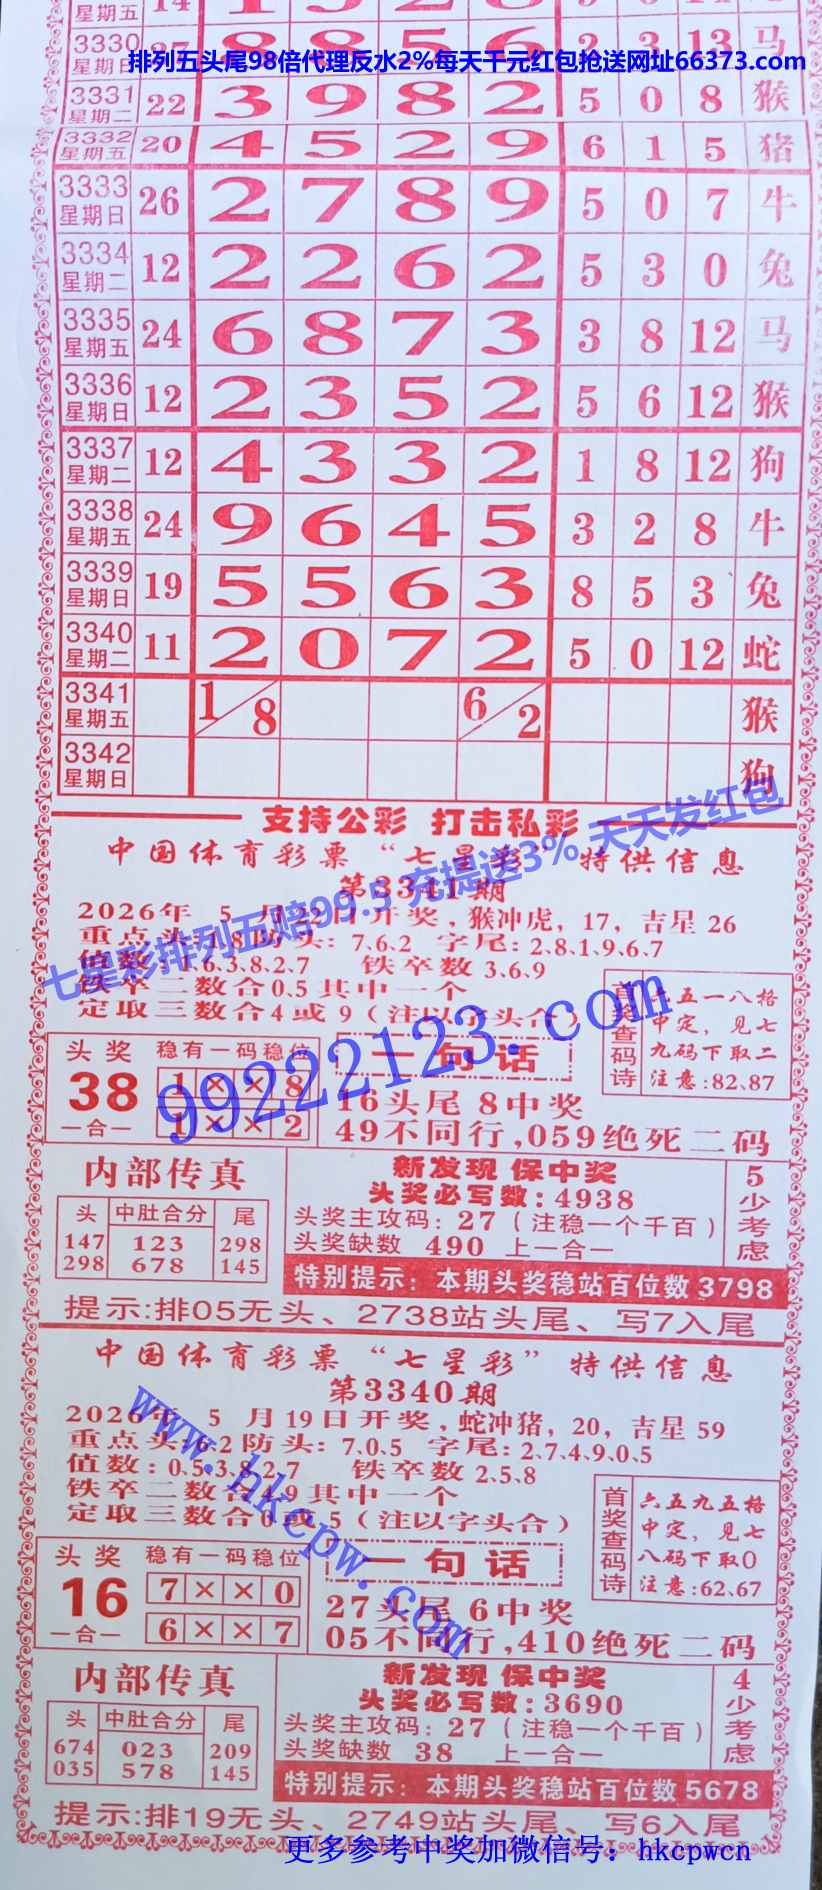 星期五 14
3330 星期日 27 8 8 5 6 2 3 13 马
排列五头尾98倍代理反水2%每天千元红包抢送网址66373.com
3331 星期二 22 3 9 8 2 5 0 8 猴
3332 星期五 20 4 5 2 9 6 1 5 猪
3333 星期日 26 2 7 8 9 5 0 7 牛
3334 星期二 12 2 2 6 2 5 3 0 兔
3335 星期五 24 6 8 7 3 3 8 12 马
3336 星期日 12 2 3 5 2 5 6 12 猴
3337 星期二 12 4 3 3 2 1 8 12 狗
3338 星期五 24 9 6 4 5 3 2 8 牛
3339 星期日 19 5 5 6 3 8 5 3 兔
3340 星期二 11 2 0 7 2 5 0 12 蛇
3341 星期五 1/8 6/2 猴
3342 星期日 狗
支持公彩 打击私彩
七星彩排列五赔99.5 充提送3% 天天发红包
中国体育彩票“七星彩”特供信息
第3341期
2026年 5 月22日开奖,猴冲虎,17,吉星 26
重点头:1.8防头: 7.6.2 字尾: 2.8.1.9.6.7
值数: 1.6.3.8.2.7 铁卒数 3.6.9
铁卒二数合0.5其中一个
定取三数合4或9(注以字头合)
99222123.com
首奖查码诗
六五一八格
中定, 见七
九码下取二
注意:82.87
头奖 稳有一码稳位
38 1××8
一合一 1××2
一句话
16头尾 8中奖
49不同行,059绝死二码
内部传真
头 中肚合分 尾
147 123 298
298 678 145
新发现 保中奖
头奖必写数:4938
头奖主攻码: 27 (注稳一个千百)
头奖缺数 490 上一合一
5少考虑
特别提示: 本期头奖稳站百位数3798
提示:排05无头、2738站头尾、写7入尾
中国体育彩票“七星彩”特供信息
第3340期
2026年 5 月19日开奖,蛇冲猪,20,吉星59
重点头:6.2防头: 7.0.5 字尾: 2.7.4.9.0.5
值数: 0.5.3.8.2.7 铁卒数 2.5.8
铁卒二数合4.9其中一个
定取三数合0或5(注以字头合)
www.hkcpw.com
首奖查码诗
六五九五格
中定, 见七
八码下取0
注意:62.67
头奖 稳有一码稳位
16 7××0
一合一 6××7
一句话
27头尾 6中奖
05不同行,410绝死二码
内部传真
头 中肚合分 尾
674 023 209
035 578 145
新发现 保中奖
头奖必写数:3690
头奖主攻码: 27 (注稳一个千百)
头奖缺数 38 上一合一
4少考虑
特别提示: 本期头奖稳站百位数5678
提示:排19无头、2749站头尾、写6入尾
更多参考中奖加微信号: hkcpwcn